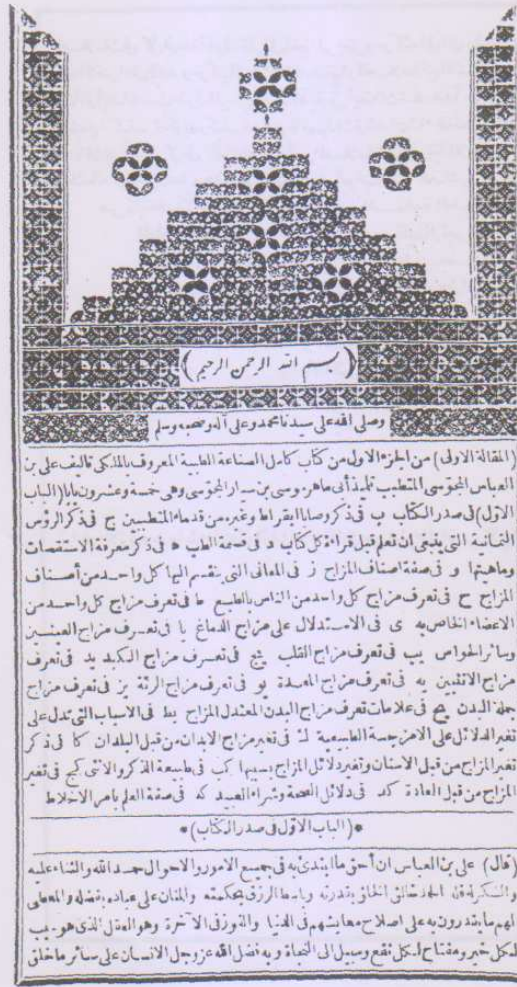 (بسم الله الرحمن الرحيم)
وصلى الله على سيدنا محمد وعلى آله وصحبه وسلم
(المقالة الاولى) من الجزء الاول من كتاب كامل الصناعة الطبية المعروف بالملكى تأليف على بن
العباس المجوسى المتطبب تلميذ أبى ماهر موسى بن سيار المجوسى وهى خمسة وعشرون بابا (الباب
الاول) فى صدر الكتاب ب فى ذكر وصايا ابقراط وغيره من قدماء المتطببين ج فى ذكر الرؤس
الثمانية التى ينبغى ان تعلم قبل قراءة كل كتاب د فى قسمة الطب ه فى ذكر معرفة الاستقصات
وماهيتها و فى صفة اصناف المزاج ز فى المعانى التى ينقسم اليها كل واحد من أصناف
المزاج ح فى تعرف مزاج كل واحد من الناس بالطبع ط فى تعرف مزاج كل واحد من
الاعضاء الخاص به ى فى الاستدلال على مزاج الدماغ يا فى تعرف مزاج العينين
وسائر الحواس يب فى تعرف مزاج القلب يج فى تعرف مزاج الكبد يد فى تعرف
مزاج الانثيين يه فى تعرف مزاج المعدة يو فى تعرف مزاج الرئة يز فى تعرف مزاج
جملة البدن يح فى علامات تعرف مزاج البدن المعتدل المزاج يط فى الاسباب التى تدل على
تغير الدلائل على الامزجة الطبيعية ك فى تغير مزاج الابدان من قبل البلدان كا فى ذكر
تغير المزاج من قبل الاسنان وتغير دلائل المزاج بسببها كب فى طبيعة الذكر والانثى كج فى تغير
المزاج من قبل العادة كد فى دلائل الصحة وشراء العبيد كه فى صفة العلم بامر الاخلاط
*(الباب الاول فى صدر الكتاب)*
(قال) على بن العباس ان أحق ما ابتدئ به فى جميع الامور والاحوال حمد الله والثناء عليه
والشكر له فان الحمد لله خالق الخلق بقدرته وباسط الرزق بحكمته والمنان على عباده بفضله والمعطى
لهم ما يقتدرون به على اصلاح معايشهم فى الدنيا والفوز فى الآخرة وهو العقل الذى هو سبب
لكل خير ومفتاح لكل نفع وسبيل الى النجاة وبه فضل الله عز وجل الانسان على سائر ما خلق